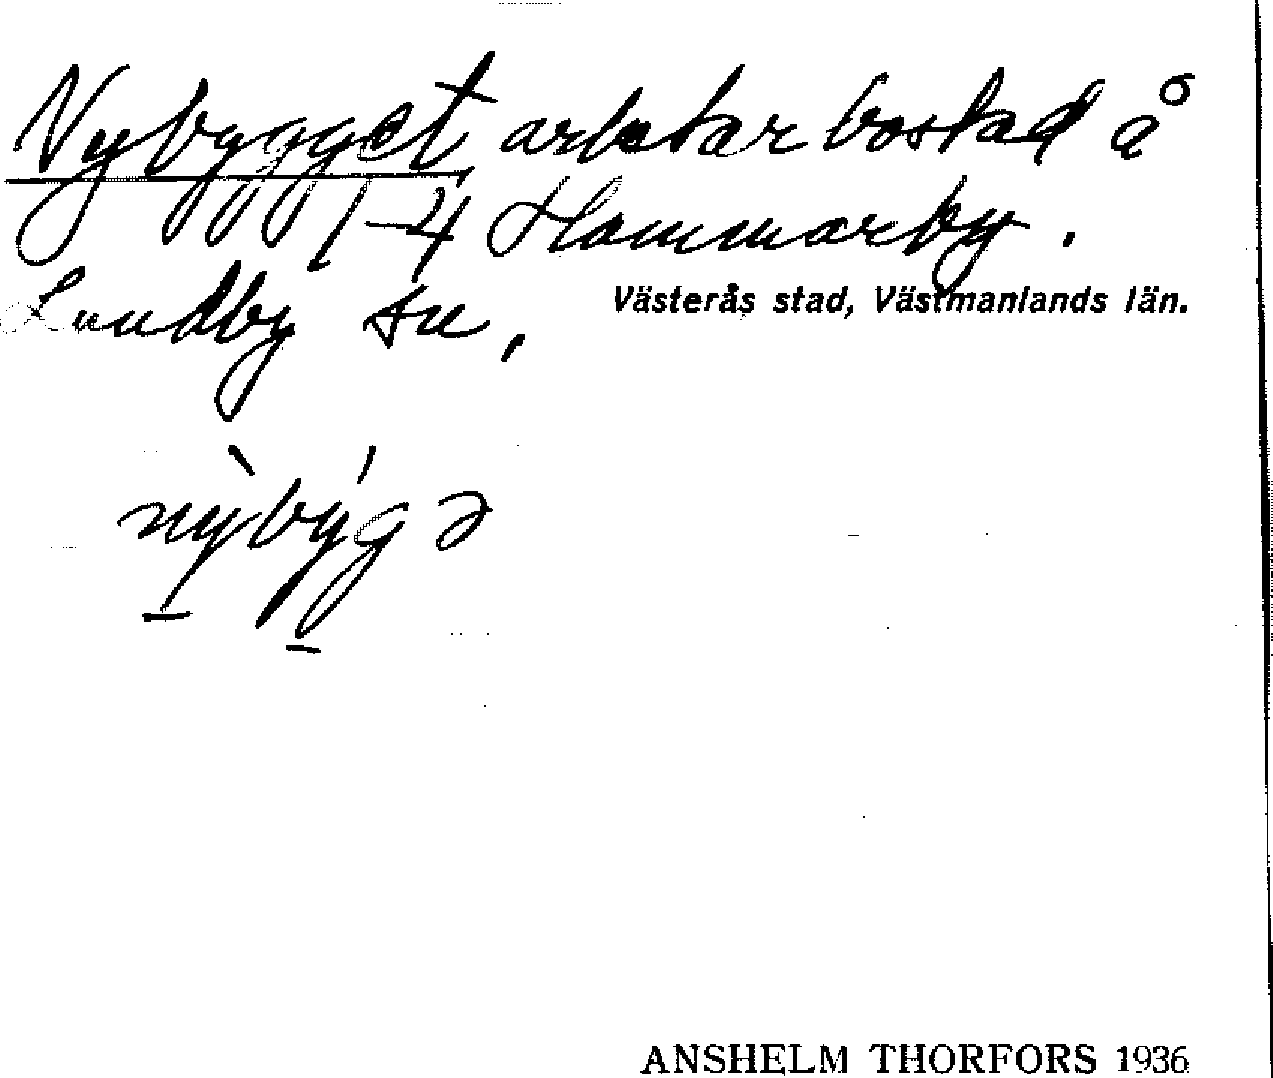 Nybygget arbetarbostad å
1-4 Hammarby.
Lundby sn,
Västerås stad, Västmanlands län.
nỳbýgə
ANSHELM THORFORS 1936